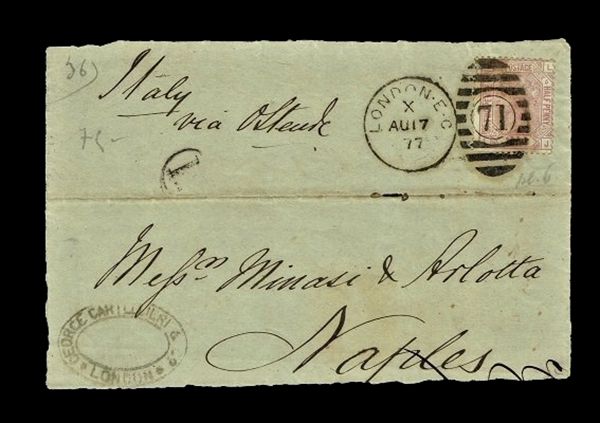 36)
Italy
via Ostende
75-
LONDON·E·C
X
AU17
77
71
POSTAGE
HALFPENNY
L
T
Messrs Minasi & Arlotta
Naples
GEORGE & Co
LONDON